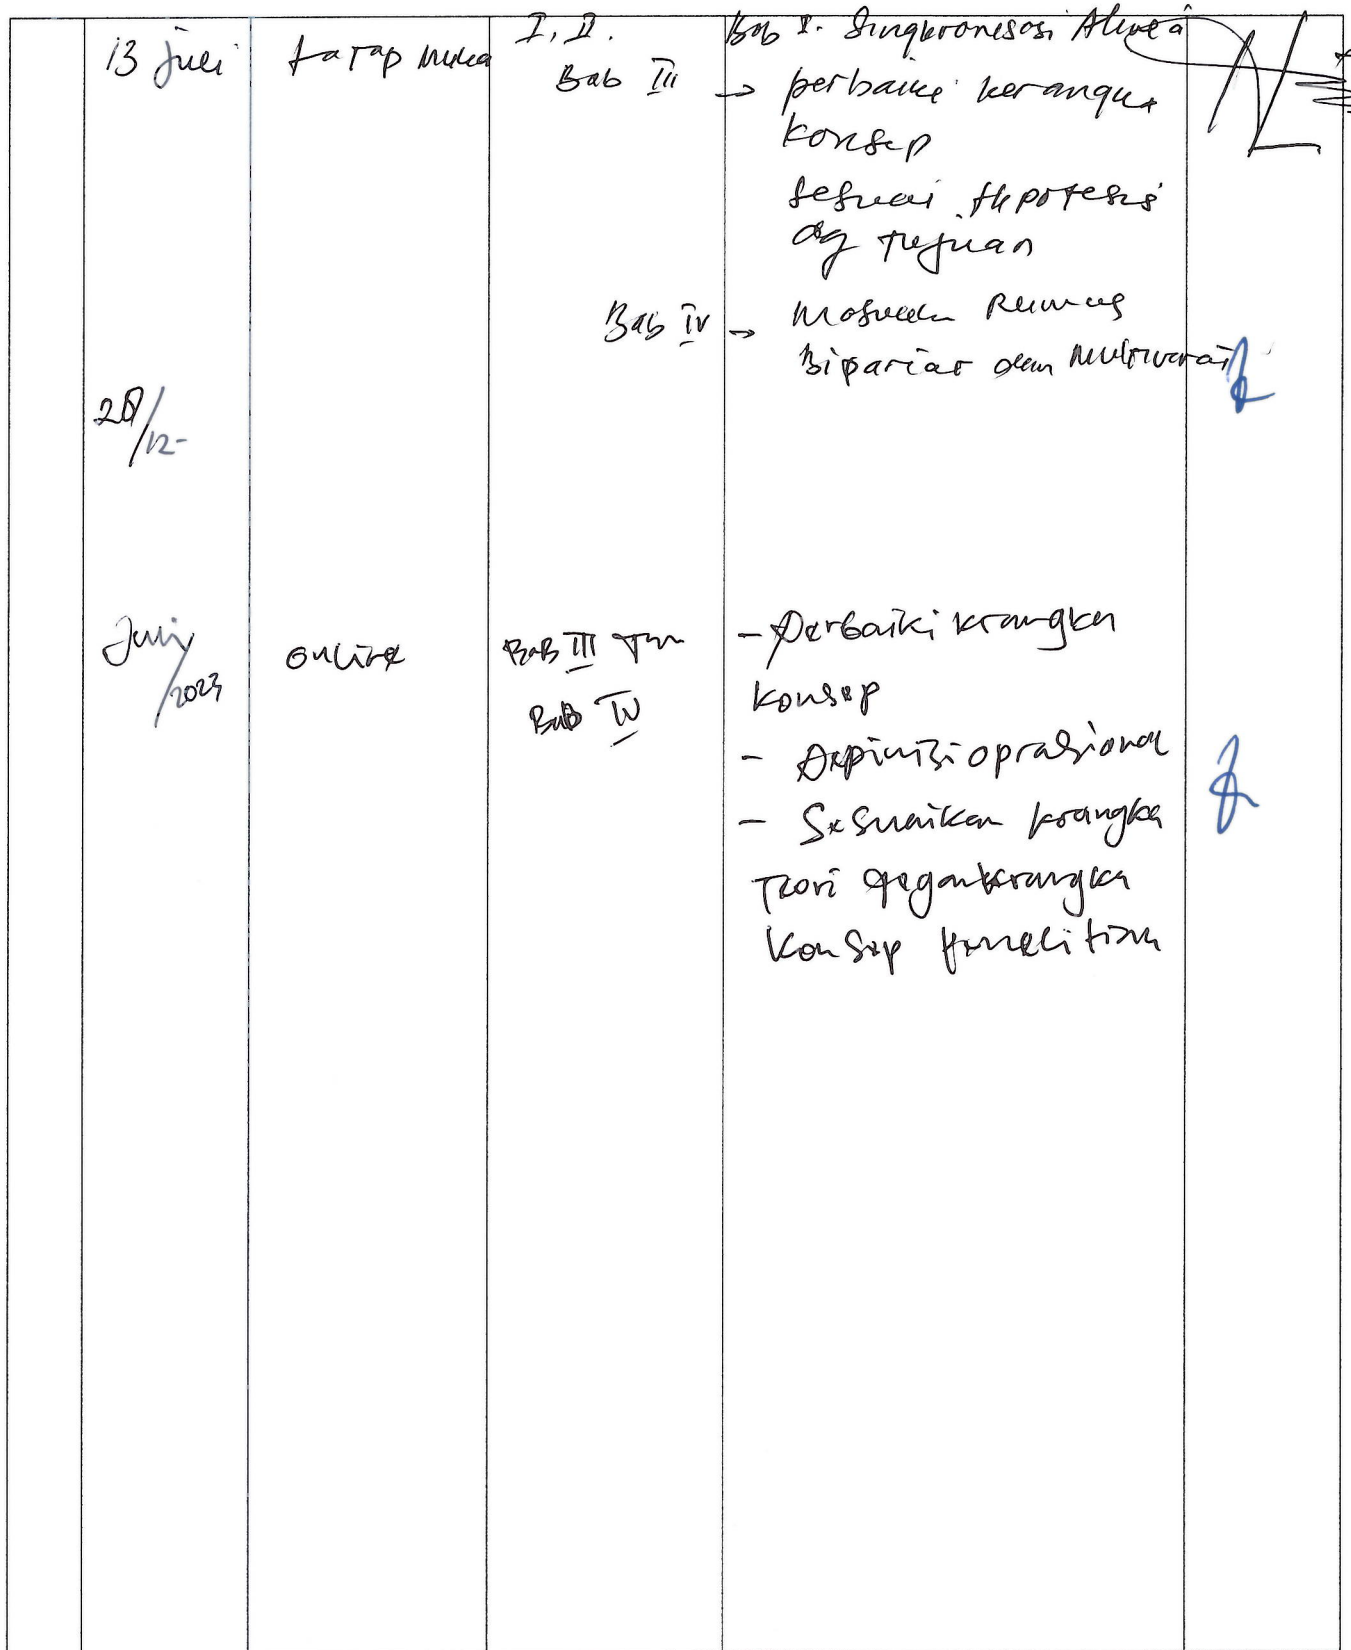 13 Juli
tatap muka
I, II.
Bab III
Bab I. Singkronisasi Alinea
→ perbaiki kerangka
konsep
sesuai Hipotesis
dg tujuan
Bab IV → Masukan Rumus
Bipariat dan Multivariat
28/12-
Juli/2023
online
BAB III
Bab IV
- Perbaiki krangka
konsep
- Depinisi oprasional
- Sesuaikan krangka
Teori dengan krangka
Konsep Penelitian